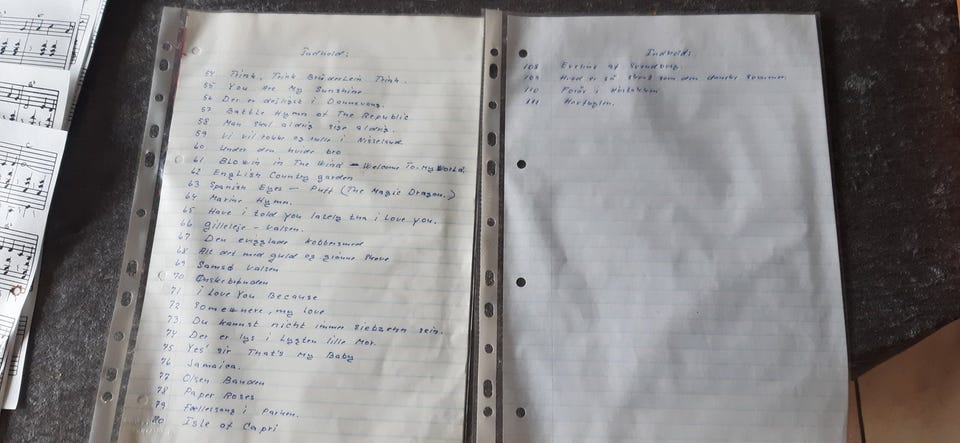 Indhold:
54 Trink, Trink Brüderlein Trink.
55 You Are My Sunshine
56 Der er dejligst i Donnavang.
57 Battle Hymn of The Republic
58 Man skal aldrig sige aldrig.
59 Vi vil rokke og rulle i Nisseland
60 Under den hvide bro
61 Blowin in The Wind - Welcome To My World.
62 English Country garden
63 Spanish Eyes - Puff (The Magic Dragon.)
64 Marine Hymn.
65 Have i told You lately tha i Love you.
66 Gilleleje - valsen.
67 Den evigglade kobbersmed
68 Alt det med guld og grønne skove
69 Samsø valsen
70 Ønskebrønden
71 i Love You Because
72 Somewhere, my Love
73 Du kannst nicht immer Siebzehn sein.
74 Der er lys i lygten lille Mor.
75 Yes' sir That's My Baby
76 Jamaica.
77 Olsen Banden
78 Paper Roses
79 Fællessang i Parken.
80 Isle of Capri
Indhold:
108 Eveline af Svendborg.
109 Hvad er så skønt som den danske sommer.
110 Forår i
111